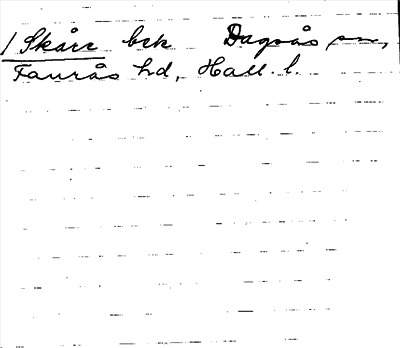 1 Skårr bek Dagsås sn,
Faurås hd, Hall. l.